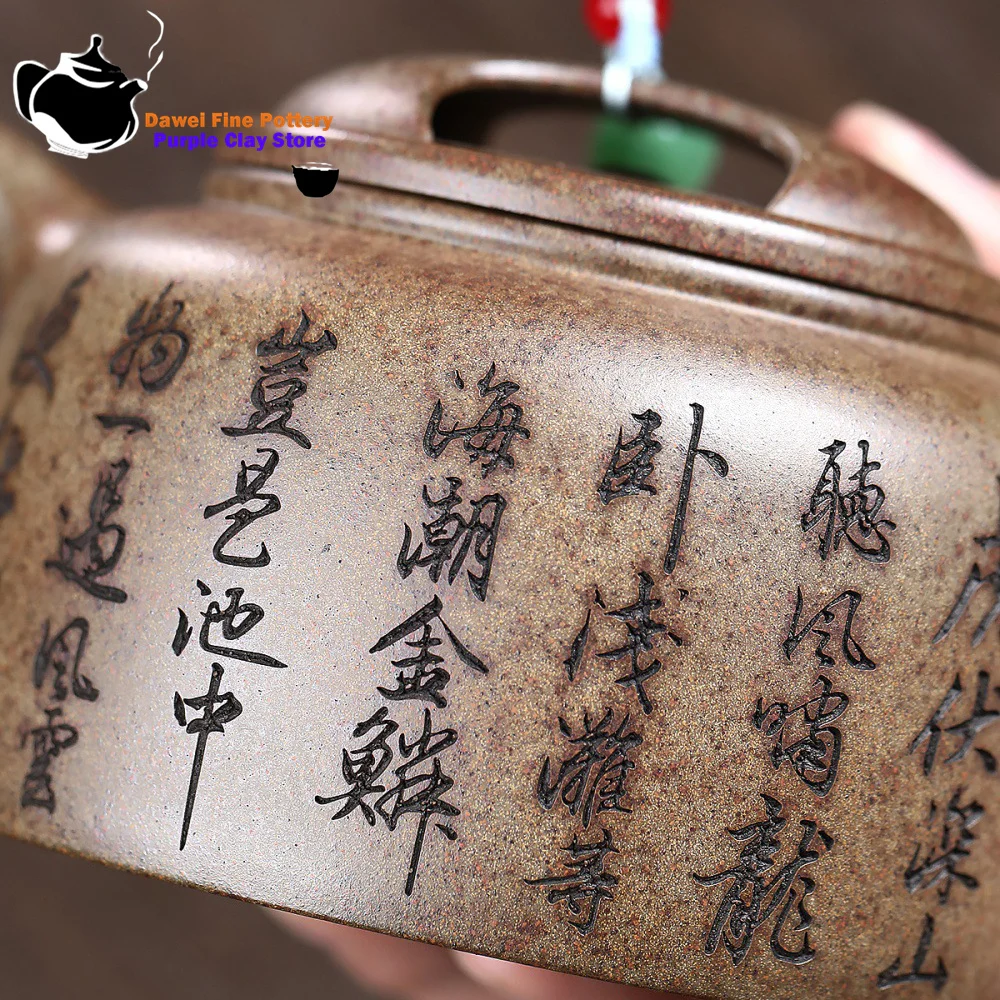 Dawei Fine Pottery
Purple Clay Store
虎伏深山
聽風嘯龍
卧淺灘等
海潮金鱗
豈是池中
物一遇風雲